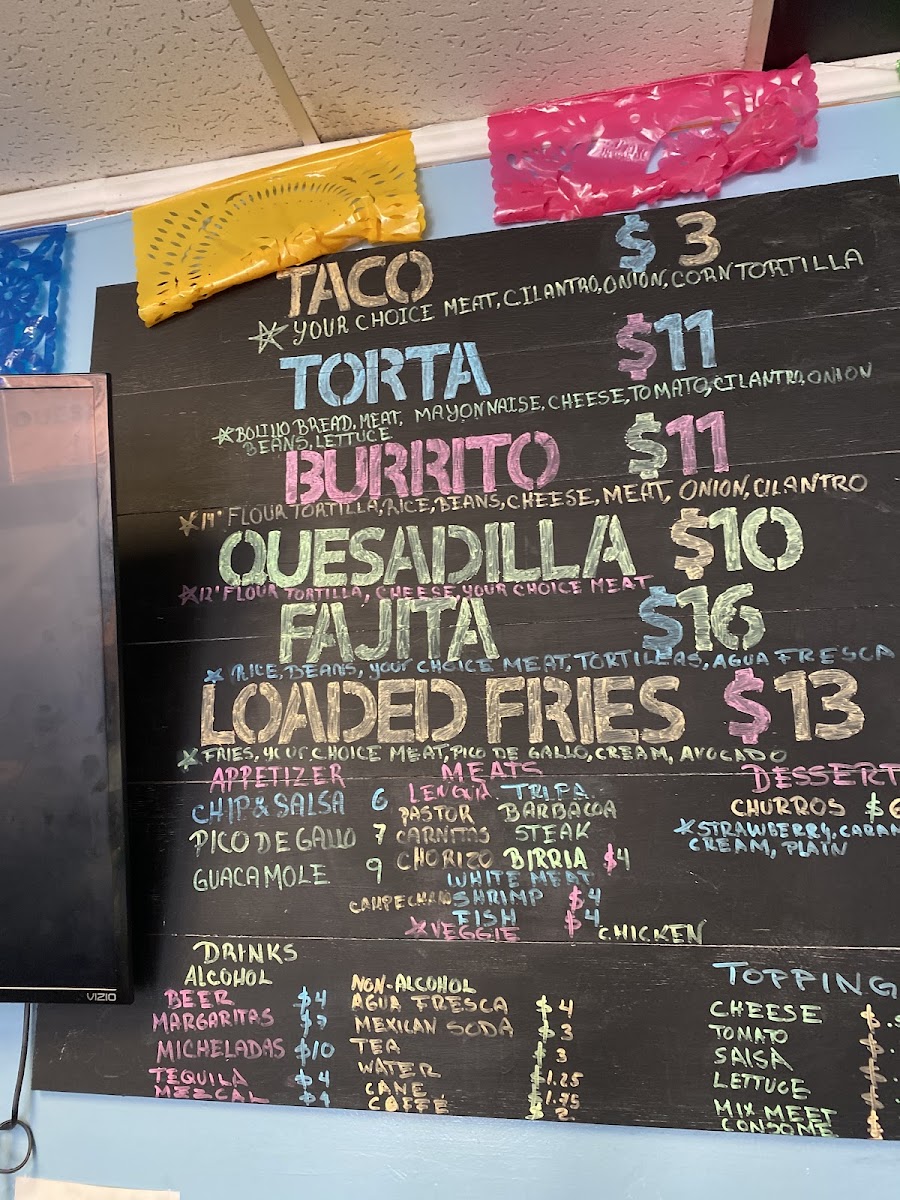 TACO $3
☆ YOUR CHOICE MEAT, CILANTRO, ONION, CORN TORTILLA
TORTA $11
☆ BOLILLO BREAD, MEAT, MAYONNAISE, CHEESE, TOMATO, CILANTRO, ONION
BEANS, LETTUCE
BURRITO $11
☆ 14" FLOUR TORTILLA, RICE, BEANS, CHEESE, MEAT, ONION, CILANTRO
QUESADILLA $10
☆ 12" FLOUR TORTILLA, CHEESE, YOUR CHOICE MEAT
FAJITA $16
☆ RICE, BEANS, YOUR CHOICE MEAT, TORTILLAS, AGUA FRESCA
LOADED FRIES $13
☆ FRIES, YOUR CHOICE MEAT, PICO DE GALLO, CREAM, AVOCADO
APPETIZER
CHIP & SALSA 6
PICO DE GALLO 7
GUACAMOLE 9
MEATS
LENGUA TRIPA
PASTOR BARBACOA
CARNITAS STEAK
CHORIZO BIRRIA $4
WHITE MEAT
CAMPECHANO SHRIMP $4
FISH $4
☆ VEGGIE CHICKEN
DESSERT
CHURROS $6
☆ STRAWBERRY, CARAM
CREAM, PLAIN
DRINKS
ALCOHOL
BEER $4
MARGARITAS $7
MICHELADAS $10
TEQUILA $4
MEZCAL $4
NON-ALCOHOL
AGUA FRESCA $4
MEXICAN SODA $3
TEA 3
WATER 1.25
CANE 1.75
COFFE 2.
TOPPING
CHEESE $.
TOMATO
SALSA
LETTUCE
MIX MEET
CONSOME
VIZIO